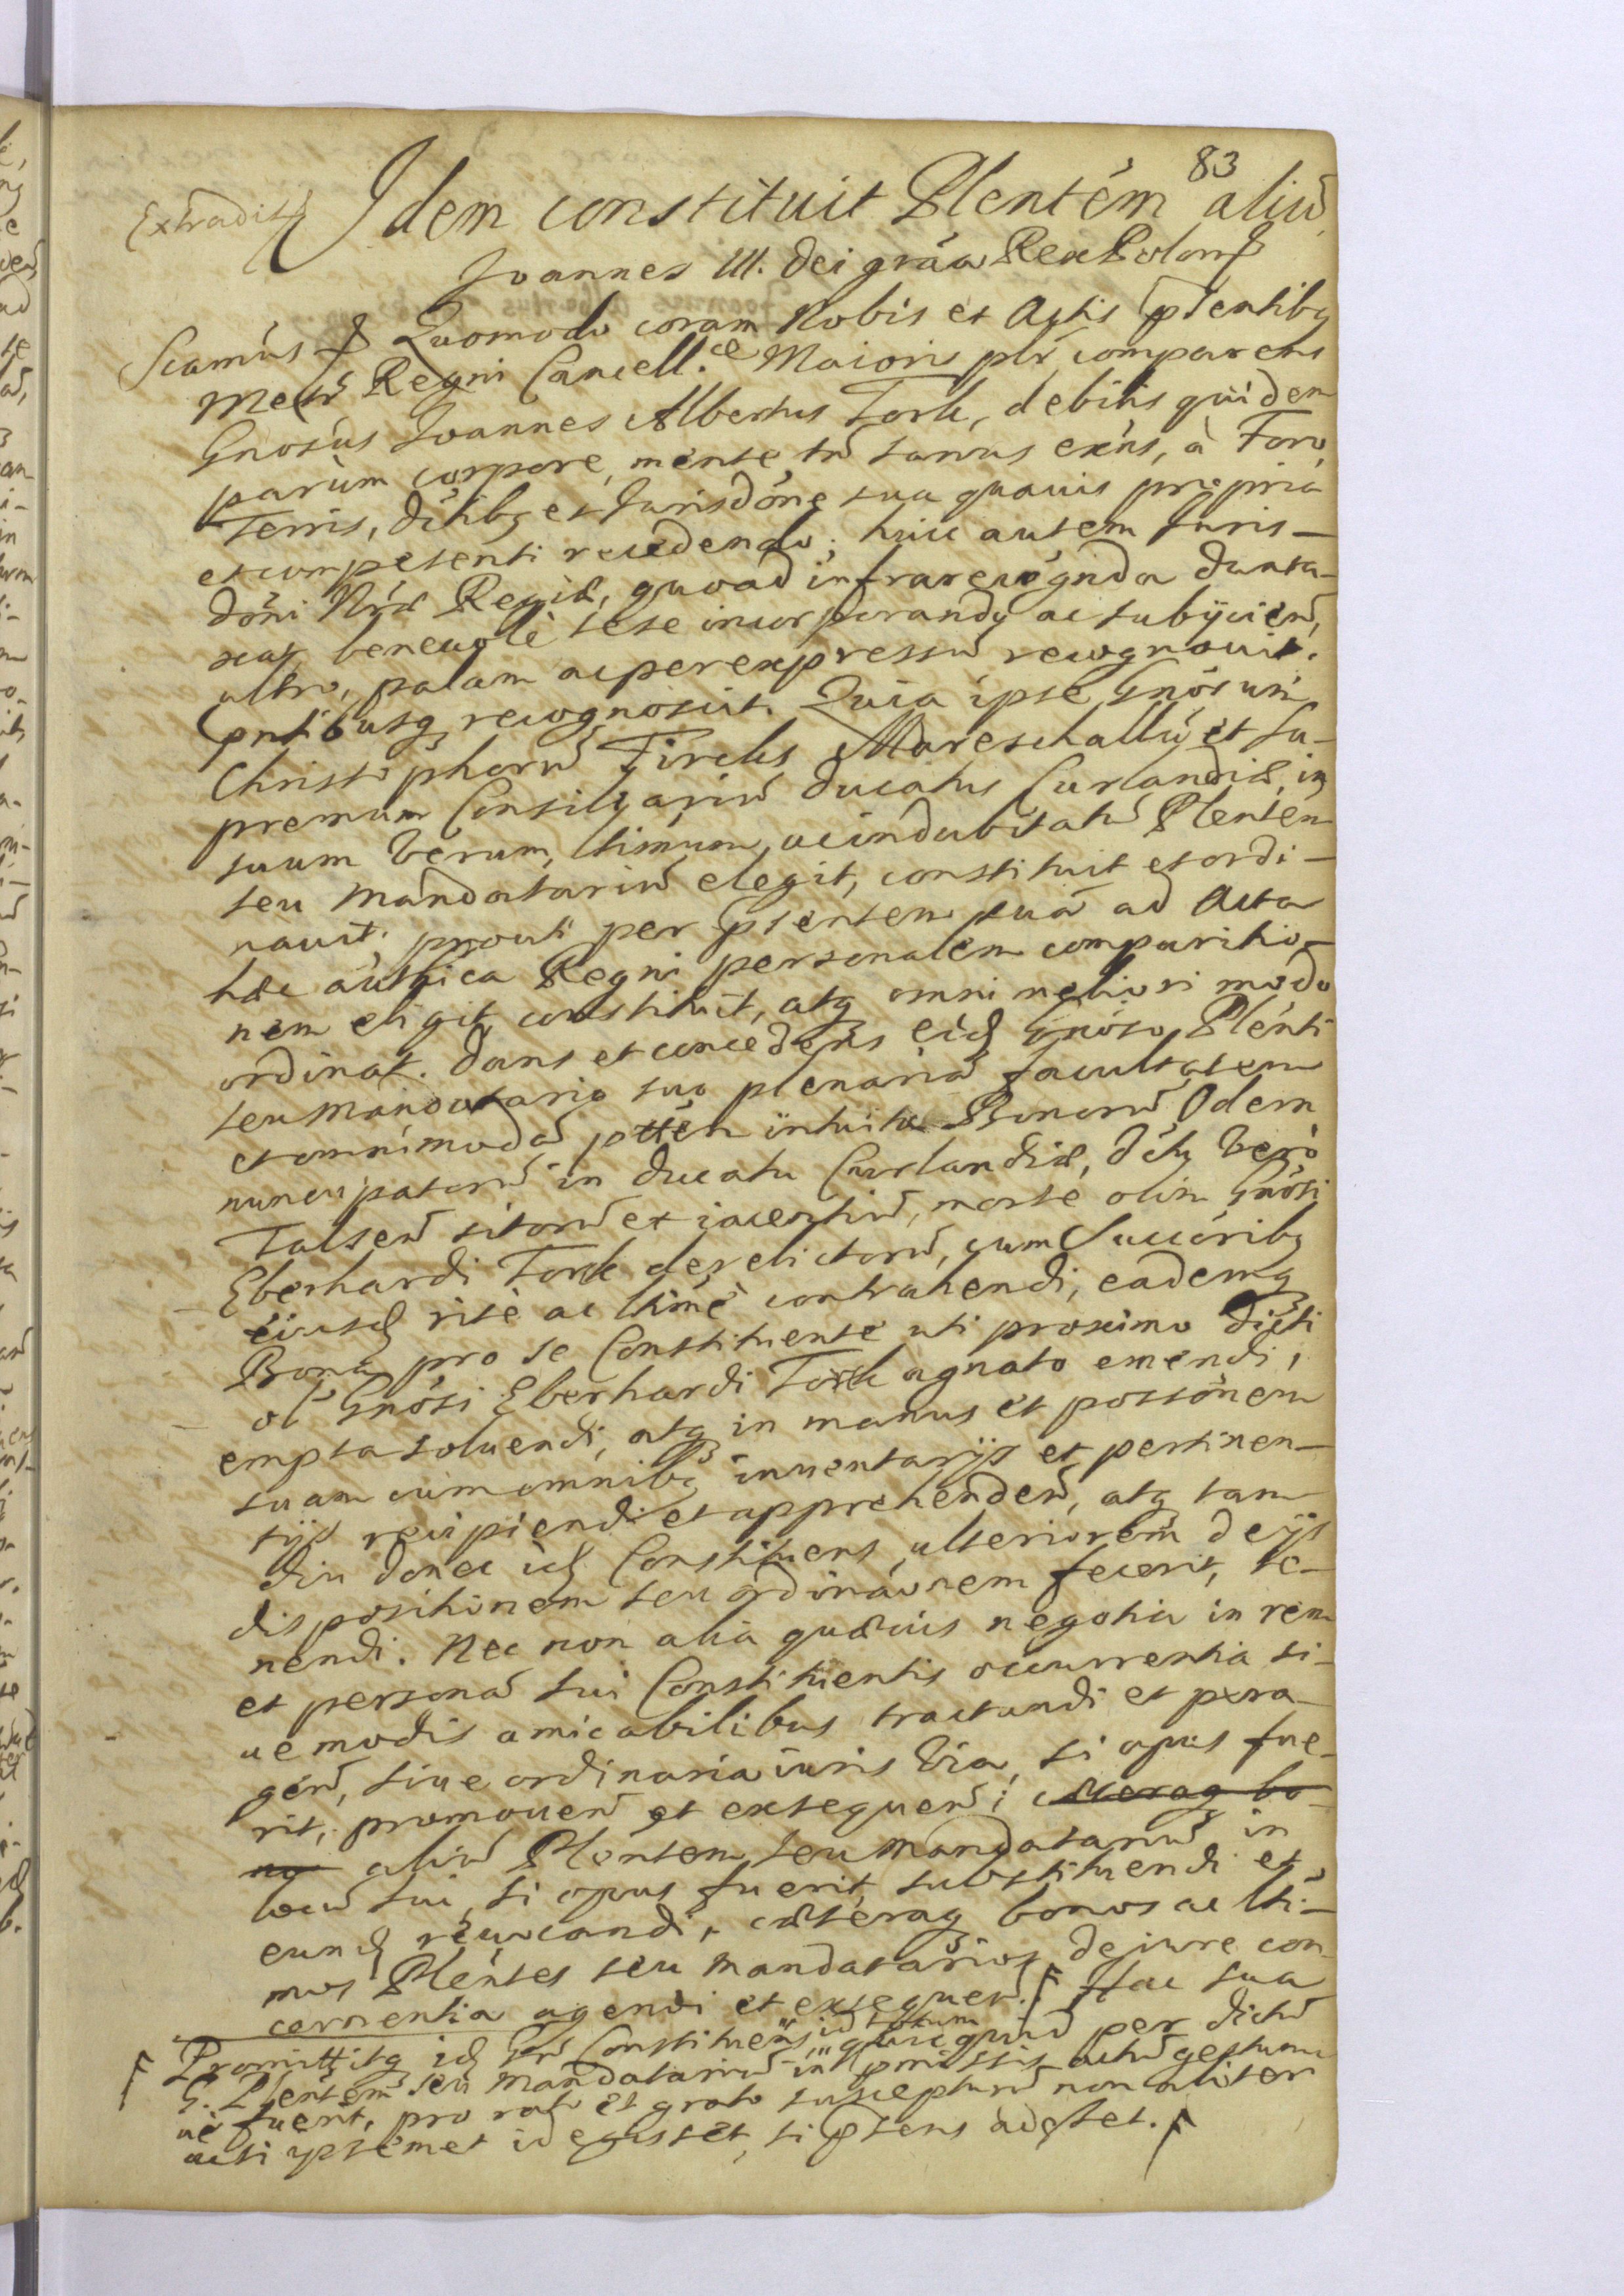 83
Extradit
Idem constituit Plentém aliũ
Joannes III. Dei gráa Rex Polon
Scamús Quomodo coram Nobis et Actis pñtibq
Metr Regni Cancell.æ Maioris plr comparens
Gnosus Joannes Albertus Tork, debilis quidem
parùm corpore, mente tñ sanus exńs, à Foro,
Terris, dítibq et Jurisdóne sua quauis propria
et competenti recedendo, huic autem Juris-
dóni Nræ Regiæ, quoad infrarecógnda dunta-
xat beneuolè sese incorporandq ac subijcień,
ultro, palam ac per expressũ recognouit.
pntibusq recognoscit. Quia ipse Gnosum
Christophorũ Fircks Mareschallũ et Su-
premum Consiliariũ Ducatus Curlandiæ, in
suum Verum, ltimum, ac indubitatũ Plentem
seu Mandatariũ elegit, constituit et ordi-
nauit. prout per pśentem suá ad Acta
hæc authica Regni personalem comparitio-
nem eligit, constituit, atq omni meliori modo
ordinat. Dans et concedens eid Gnóso Plénti
seu Mandatario suo plenariã facultatem
et omnimodã pttém intuitu Bonorũ Odern
nuncupatorũ in Ducatu Curlandiæ, dctu Verò
Talseń sitorũ et iacentiũ, morte olim Gnósi
Eberhardi Tork derelictorũ, cum Successoribq
eiusd ritè ac ltimè contrahendi, eademq
Bona pro se Constituente uti proximo dicti
ol Gnósi Eberhardi Tork agnato emendi,
empta soluendi, atq in manus et possónem
suam cum omnibq inuentarijs et pertinen-
tijs recipiendi et apprehendeń, atq tam
diu donec id Constituens ulteriorem de ijs
dispositionem seu ordináonem fecerit, te-
nendi. Nec non alia quæuis negotia in rem
et personã sui Constituentis occurrentia si-
ue modis amicabilibus tractandi et pera-
geń, siue ordinaria iuris Via, si opus fue-
rit, promoueń et exsequeń; cæteraq bo-
nq aliũ Plentem seu Mandatariũ in
locũ sui, si opus fuerit substituendi et
eund reuocandi, cæteraq bonos ac lti-
mos Plentes seu Mandatarios de iure con-
cernentia agendi et exsequeń. Hac sua
Promittitq id Gñs Constituens, id totum quicquid per dictũ
G. Plentem seu Mandatariũ in pmissis actũ gestumu
ue fuerit, pro rato et grato suscepturũ non aliter
acsi ipsemet id egisset, si pśens adesset.